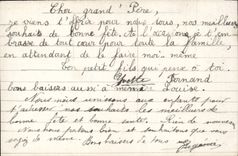 Cher grand' Père,
je viens t'offrir pour nous tous, nos meilleurs
souhaits de bonne fête. A l'occasion je t'em
brasse de tout cœur pour toute la famille,
en attendant de le faire moi-même.
Ton petit fils qui pense à toi.
Yvette Fernand
bons baisers aussi à mémère Louise.
Nous nous unissons aux enfants pour
t'adresser nos souhaits les meilleurs de
bonne fête et bonne santé. Rien de nouveau
Nous nous portons bien et souhaitons que vous
soyez de même. Bons baisers de tous